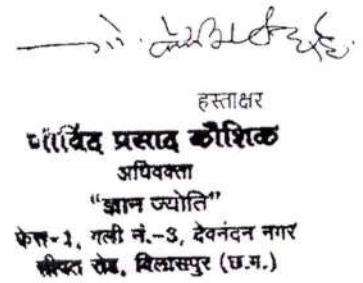 हस्ताक्षर
गोविंद प्रसाद कौशिक
अधिवक्ता
“ज्ञान ज्योति”
फेस-1, गली नं.-3, देवनंदन नगर
सीपत रोड, बिलासपुर (छ.ग.)